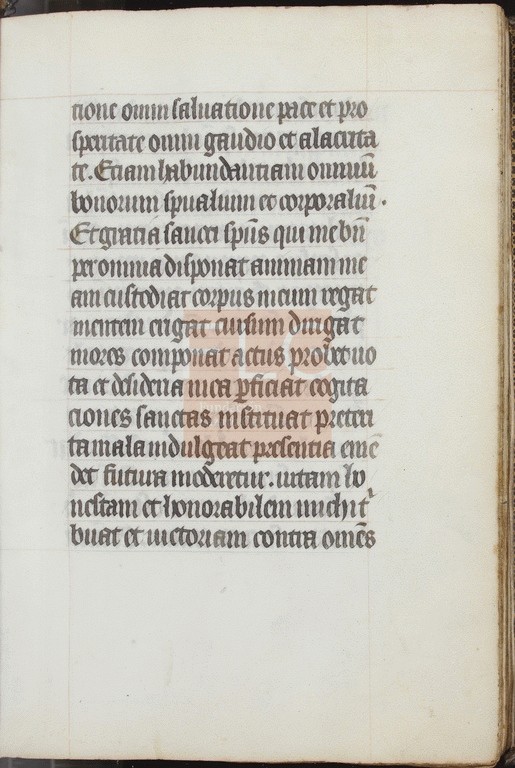 tione omni saluatione pace et pro
speritate omni gaudio et alacrita
te. Etiam habundantiam omniuū
bonorum spualium et corporaliū.
Et gratia sancti spūs qui me bn̄
per omnia disponat animam me
am custodiat corpus meum regat
mentem erigat cursum dirigat
mores componat actus probet uo
ta et desideria mea ꝑficiat cogita
ciones sanctas instituat preteri
ta mala indulgeat presentia emē
det futura moderetur. uitam ho
nestam et honorabilem michi t̓
buat et uictoriam contra omēs